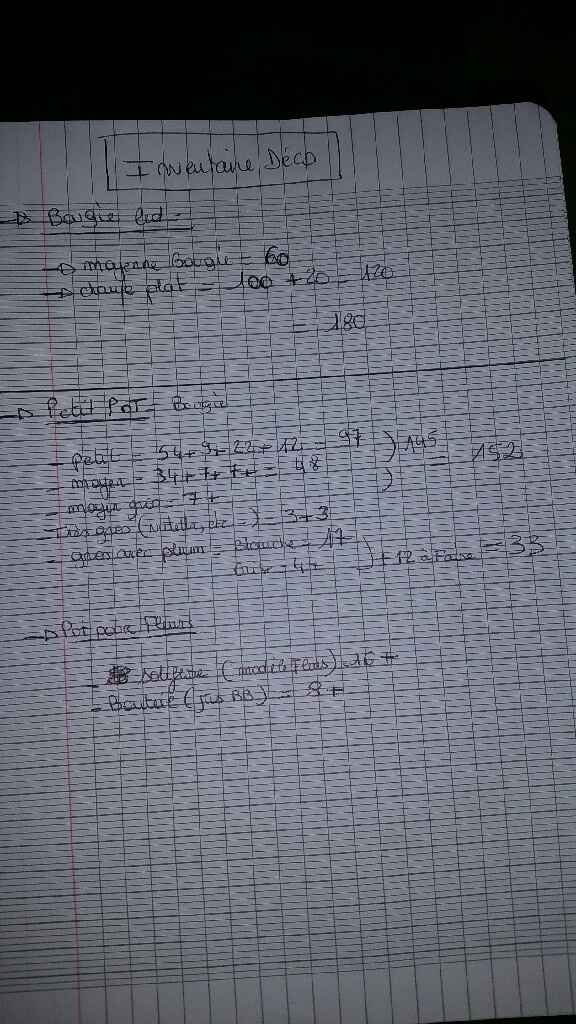 Inventaire Déco
→ Bougie led -
→ moyenne Bougie = 60
→ plat = 100 + 20 = 120
= 180
→ Petit Pot - Bougie
- petit = 54 + 9 + 22 + 12 = 97 ) 145
- moyen = 34 + 7 + 7 + = 48 = 152
- moyen gros = 7 + )
- Très gros (Nutella, etc =) = 3 + 3
- gros avec plum = Blanche = 17 ) + 12 à Faire = 33
= 4 +
→ Pot pour Fleurs
- soliflore (modèle Fleurs) 16 +
- Bouteille (jus BB) = 8 +